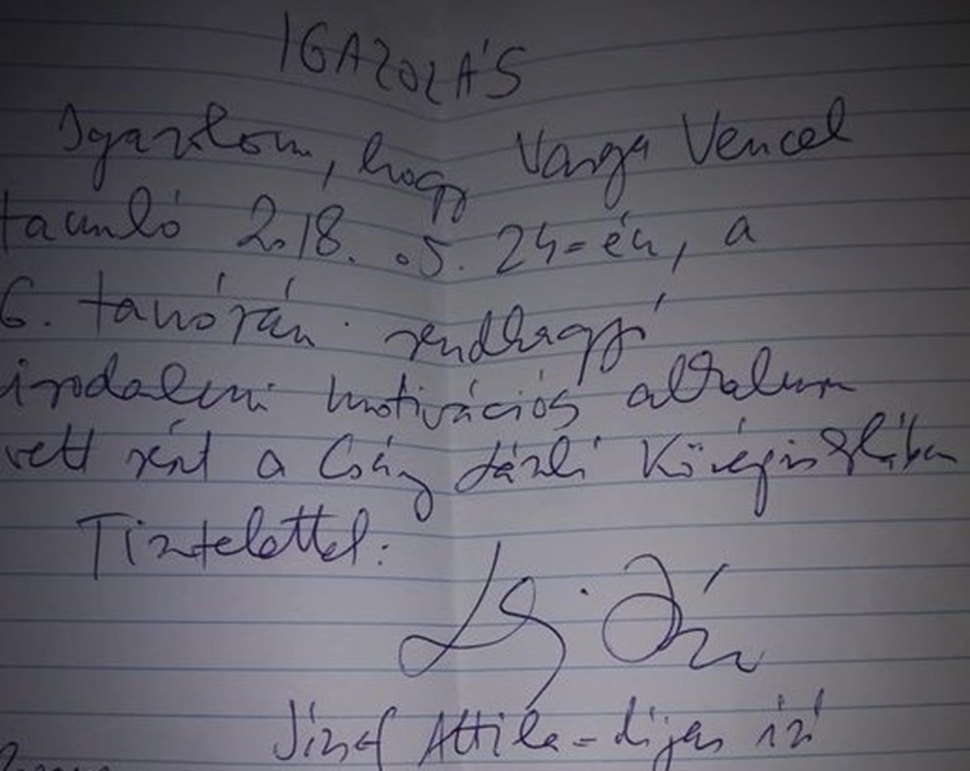 IGAZOLÁS
Igazolom, hogy Varga Vencel
tanuló 2018. 05. 24-én, a
6. tanórán rendhagyó
irodalmi motivációs alkalmon
vett részt a Csány László Középiskolában
Tisztelettel:
József Attila-díjas író